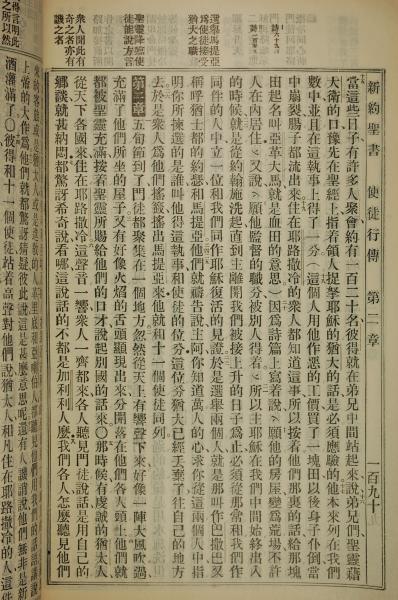 新約聖書 使徒行傳 第二章 一百九十
當這些日子有許多人聚會約有一百二十名彼得就在弟兄中間站起來說弟兄們聖靈藉
大衛的口豫先在聖經上指着領人捉拏耶穌的猶大的話是必須應驗的他本來列在我們
數中並且在這執事上得了一分○這個人用他作惡的工價買了一塊田以後身子仆倒當
中崩裂腸子都流出來住在耶路撒冷的衆人都知道這事所以按着他們那裏的話給那塊
田起名叫亞革大馬就是血田的意思○因爲詩篇上寫着說願他的房屋變爲荒場不許
人在內居住又說願他監督的職分被別人得着所以主耶穌在我們中間始終出入
的時候就是從約翰施洗起直到主離開我們被接上升的日子爲止必須從那常和我們作
同伴的人中立一位和我們同作耶穌復活的見證於是選舉兩個人就是那叫作巴撒巴又
稱呼猶士都的約瑟和馬提亞他們就禱告說主阿你知道萬人的心求你從這兩個人中指
明你所揀選的是誰叫他得這執事和使徒的位分這位分猶大已經丟棄了往自己的地方
去於是衆人爲他們搖籤搖出馬提亞來他就和十一個使徒同列
第二章 五旬節到了門徒都聚集在一個地方忽然從天上有響聲下來好像一陣大風吹過
充滿了他們所坐的屋子又有好像火焰的舌頭顯現出來分開落在他們各人頭上他們就
都被聖靈充滿按着聖靈所賜給他們的口才說起別國的話來○那時候有虔誠的猶太人
從天下各國來住在耶路撒冷這聲音一響衆人一齊都來各人聽見門徒說話是用自己的
鄉談就甚納悶都驚訝希奇說看哪這說話的不都是加利利人麼我們各人怎麼聽見他們
酒灌滿了○彼得和十一個使徒站起高聲對他們說猶太人和凡住在耶路撒冷的人這件
選舉馬提亞
爲使徒接受
猶大之職
聖靈降臨使
徒能說方言
衆人聞此有
奇之者亦有
譏之者